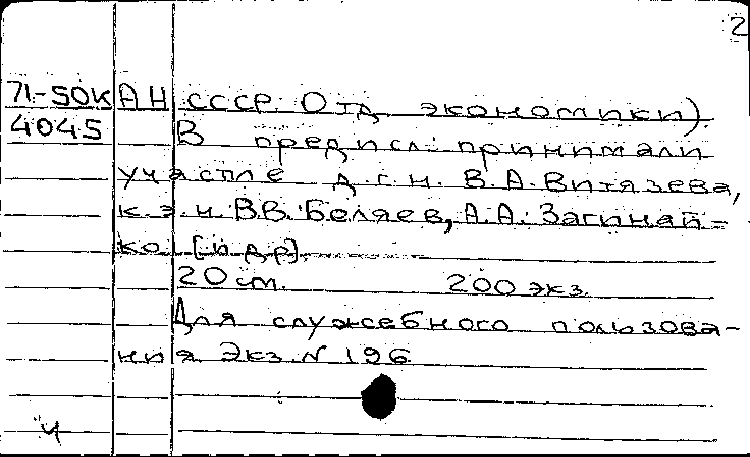 2
71-50К АН СССР. Отд. экономики).
4045 В предисл.: принимали
участие д.г.н. В.А. Витязева,
к.э.н. В.В. Беляев, А.А. Загинай-
ко [и др].
20 см. 200 экз.
Для служебного пользова-
ния Экз. N 196
ч